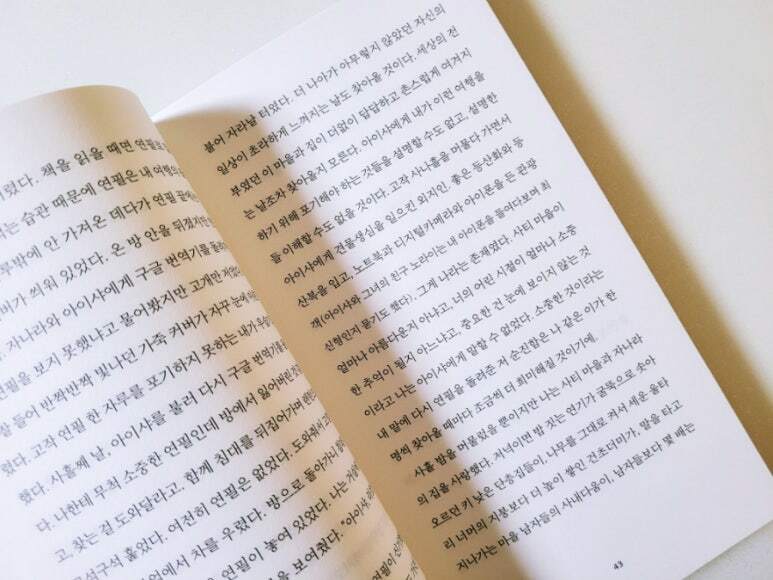 렸다. 책을 읽을 때면 연필로
는 습관 때문에 연필은 내 여행의
부밖에 안 가져온 데다가 연필 끝에
버가 씌워 있었다. 온 방 안을 뒤졌지만
자나라와 아이샤에게 구글 번역기를
연필을 보지 못했냐고 물어봤지만 고개만 저었
잘 들어 반짝반짝 빛나던 가죽 커버가 자꾸 눈에
렸다. 고작 연필 한 자루를 포기하지 못하는 내가
했다. 사흘째 날, 아이샤를 불러 다시 구글 번역기를
다. 나한테 무척 소중한 연필인데 방에서 잃어버린
고, 찾는 걸 도와달라고. 함께 침대를 뒤집어가며
구석구석 훑었다. 여전히 연필은 없었다. 도와줘서 고
에서 차를 우렸다. 방으로 돌아가니
연필이 놓여 있었다. 나는
을 보여줬다. "아이샤,
붙어 자라날 터였다. 더 나아가 아무렇지 않았던 자신의
일상이 초라하게 느껴지는 날도 찾아올 것이다. 세상의 전
부였던 이 마을과 집이 더없이 답답하고 촌스럽게 여겨지
는 날조차 찾아올지 모른다. 아이샤에게 내가 이런 여행을
하기 위해 포기해야 하는 것들을 설명할 수도 없고, 설명한
들 이해할 수도 없을 것이다. 고작 사나흘을 머물다 가면서
아이샤에게 견물생심을 일으킨 외지인. 좋은 등산화와 등
산복을 입고, 노트북과 디지털카메라와 아이폰을 든 관광
객(아이샤와 그녀의 친구 노라이는 내 아이폰을 들여다보며 최
신형인지 묻기도 했다). 그게 나라는 존재였다. 사티 마을이
얼마나 아름다운지 아냐고, 너의 어린 시절이 얼마나 소중
한 추억이 될지 아느냐고, 중요한 건 눈에 보이지 않는 것
이라고 나는 아이샤에게 말할 수 없었다. 소중한 것이라는
내 말에 다시 연필을 돌려준 저 순진함은 나 같은 이가 한
명씩 찾아올 때마다 조금씩 더 희미해질 것이기에.
사흘 밤을 머물렀을 뿐이지만 나는 사티 마을과 자나라
의 집을 사랑했다. 저녁이면 밥 짓는 연기가 굴뚝으로 솟아
오르던 키 낮은 단층집들이, 나무를 그대로 켜서 세운 울타
리 너머의 지붕보다 더 높이 쌓인 건초더미가, 말을 타고
지나가는 마을 남자들의 사내다움이, 남자들보다 몇 배는
43